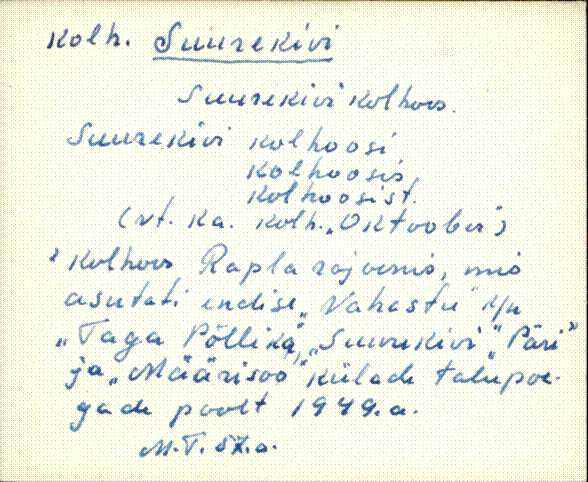 Kolh. Suurekivi
Suurekivi kolhoos.
Suurekivi kolhoosi
kolhoosis,
kolhoosist.
(vt. ka. kolh. „Oktoober")
kolhoos Rapla rajoonis, mis
asutati endise „Vahastu" k/n
„Taga Põlliku", „Suurekivi" „Päri"
ja „Määrisoo" külade talupoe-
gade poolt 1949. a.
M.T. 57. a.